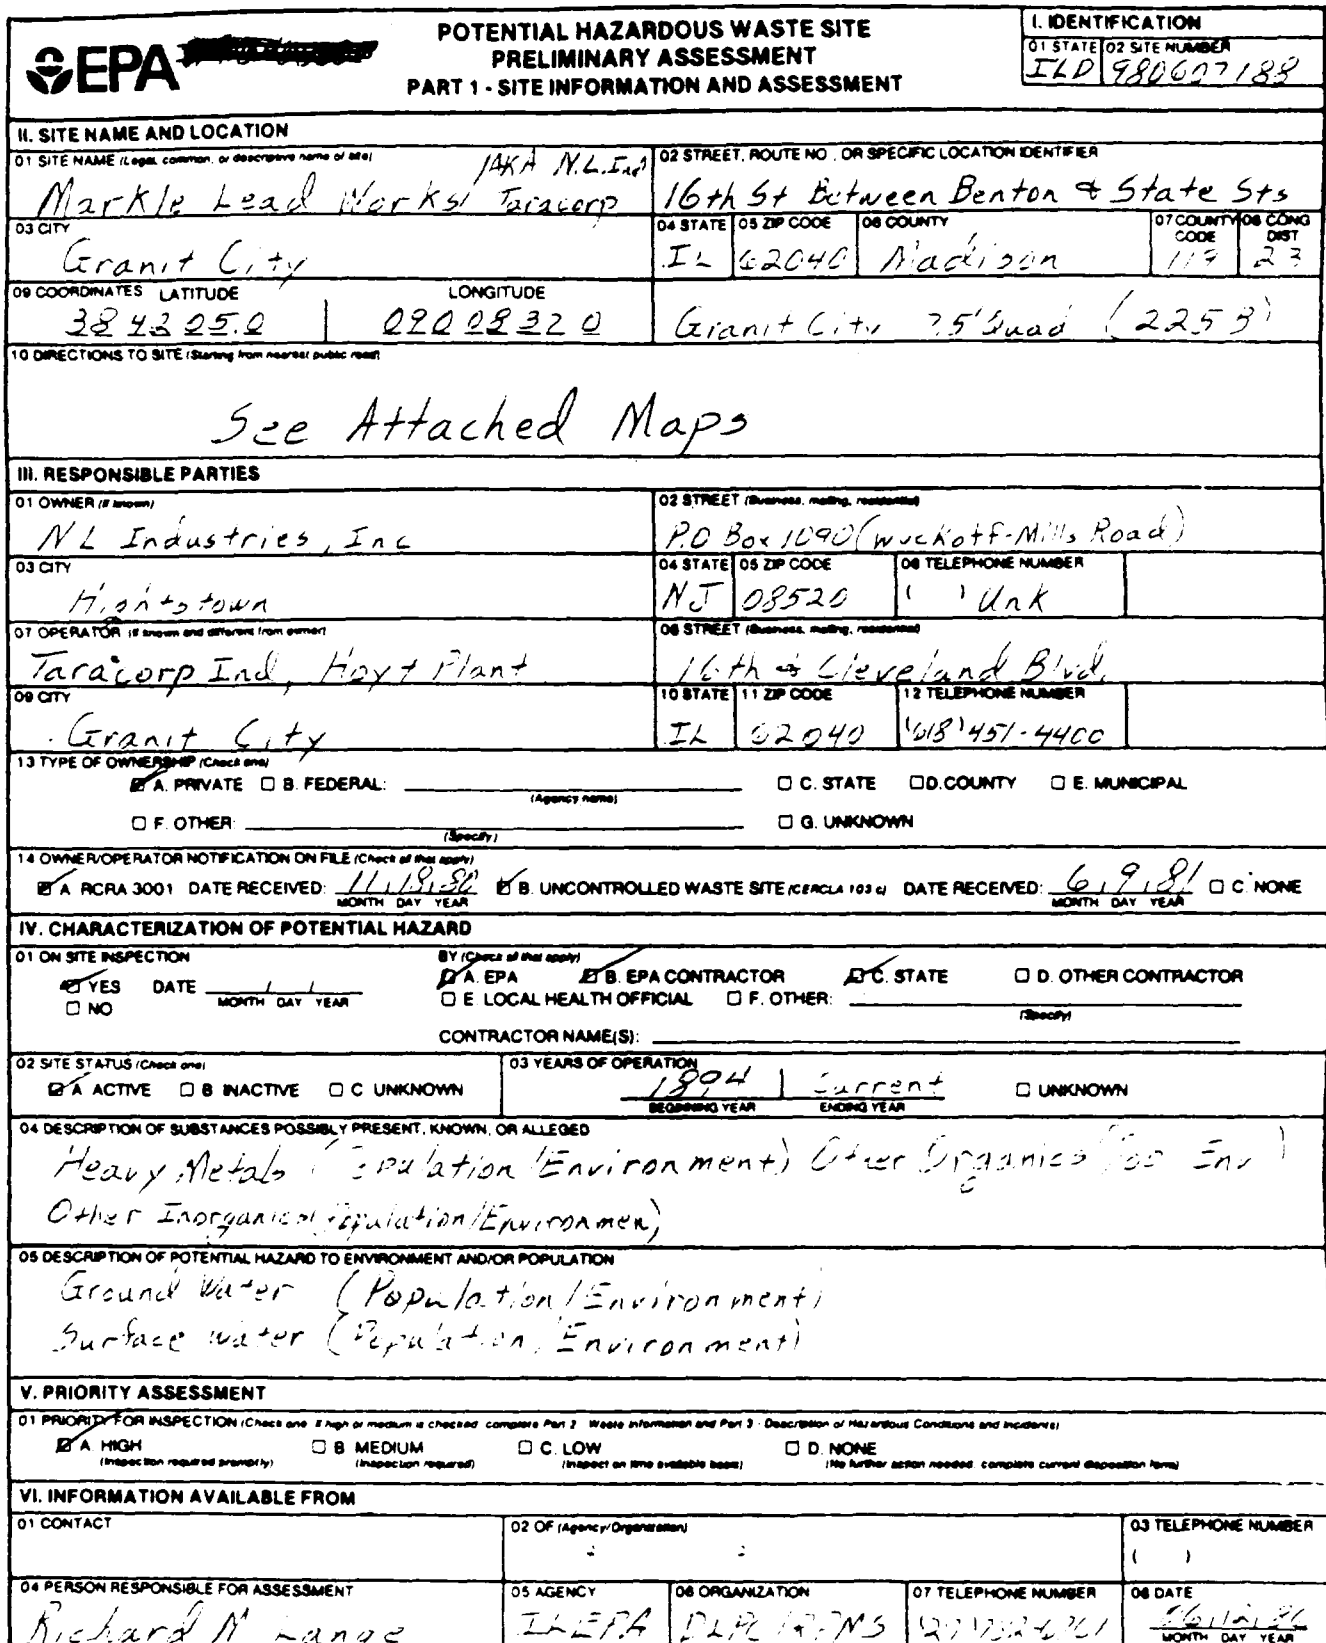 EPA
POTENTIAL HAZARDOUS WASTE SITE
PRELIMINARY ASSESSMENT
PART 1 - SITE INFORMATION AND ASSESSMENT
I. IDENTIFICATION
01 STATE 02 SITE NUMBER
ILD 980607188
II. SITE NAME AND LOCATION
01 SITE NAME (Legal, common, or descriptive name of site)
AKA N.L. Ind
Markle Lead Works/ Taracorp
02 STREET, ROUTE NO., OR SPECIFIC LOCATION IDENTIFIER
16th St Between Benton & State Sts
03 CITY
Granit City
04 STATE 05 ZIP CODE 06 COUNTY 07 COUNTY CODE 08 CONG DIST
IL 62040 Madison 119 23
09 COORDINATES LATITUDE LONGITUDE
38 42 05.0 090 08 32 0
Granit City 7.5' Quad (225B)
10 DIRECTIONS TO SITE (Starting from nearest public road)
See Attached Maps
III. RESPONSIBLE PARTIES
01 OWNER (if known)
NL Industries, Inc
02 STREET (Business, mailing, residential)
P.O Box 1090 (Wyckoff-Mills Road)
03 CITY
Hightstown
04 STATE 05 ZIP CODE 06 TELEPHONE NUMBER
NJ 08520 ( ) Unk
07 OPERATOR (if known and different from owner)
Taracorp Ind, Hoyt Plant
08 STREET (Business, mailing, residential)
16th & Cleveland Blvd.
09 CITY
Granit City
10 STATE 11 ZIP CODE 12 TELEPHONE NUMBER
IL 62040 (618) 451-4400
13 TYPE OF OWNERSHIP (Check one)
A. PRIVATE B. FEDERAL: (Agency name) C. STATE D. COUNTY E. MUNICIPAL
F. OTHER: (Specify) G. UNKNOWN
14 OWNER/OPERATOR NOTIFICATION ON FILE (Check all that apply)
A RCRA 3001 DATE RECEIVED: 11,18,80 B. UNCONTROLLED WASTE SITE (CERCLA 103 c) DATE RECEIVED: 6,9,81 C. NONE
MONTH DAY YEAR MONTH DAY YEAR
IV. CHARACTERIZATION OF POTENTIAL HAZARD
01 ON SITE INSPECTION
YES DATE / /
NO MONTH DAY YEAR
BY (Check all that apply)
A. EPA B. EPA CONTRACTOR C. STATE D. OTHER CONTRACTOR
E. LOCAL HEALTH OFFICIAL F. OTHER: (Specify)
CONTRACTOR NAME(S):
02 SITE STATUS (Check one)
A ACTIVE B INACTIVE C UNKNOWN
03 YEARS OF OPERATION
1894 Current UNKNOWN
BEGINNING YEAR ENDING YEAR
04 DESCRIPTION OF SUBSTANCES POSSIBLY PRESENT, KNOWN, OR ALLEGED
Heavy Metals (Population/Environment) Other Organics (Pop Env)
Other Inorganics (Population/Environmen)
05 DESCRIPTION OF POTENTIAL HAZARD TO ENVIRONMENT AND/OR POPULATION
Ground Water (Population/Environment)
Surface water (Population/Environment)
V. PRIORITY ASSESSMENT
01 PRIORITY FOR INSPECTION (Check one. If high or medium is checked, complete Part 2 - Waste Information and Part 3 - Description of Hazardous Conditions and Incidents)
A. HIGH B MEDIUM C. LOW D. NONE
(Inspection required promptly) (Inspection required) (Inspect on time available basis) (No further action needed, complete current disposition form)
VI. INFORMATION AVAILABLE FROM
01 CONTACT
02 OF (Agency/Organization)
03 TELEPHONE NUMBER
( )
04 PERSON RESPONSIBLE FOR ASSESSMENT
Richard M Lange
05 AGENCY
ILEPA
06 ORGANIZATION
DLPC
07 TELEPHONE NUMBER
08 DATE
06,12,86
MONTH DAY YEAR